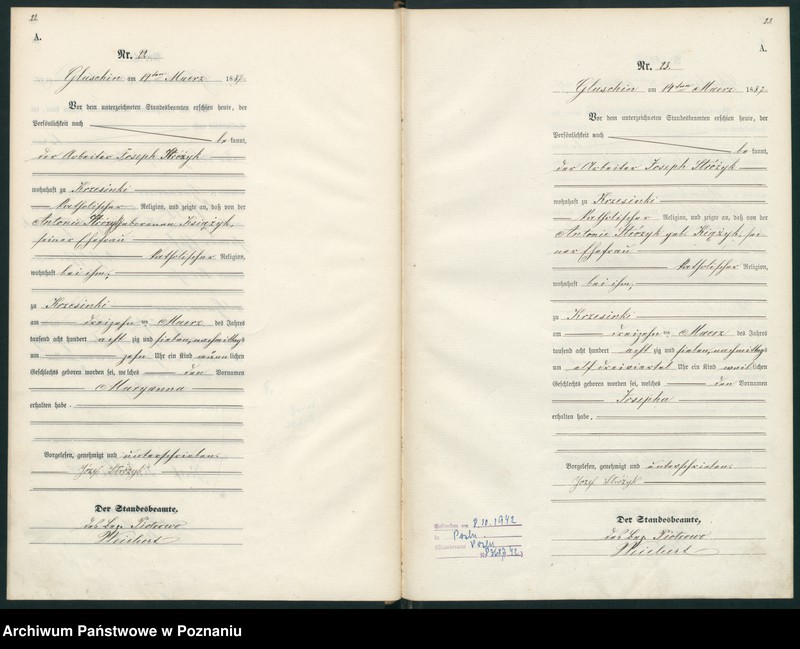 22.
A.
Nr. 22.
Gluschin am 19ten Maerz 1887
Vor dem unterzeichneten Standesbeamten erschien heute, der
Persönlichkeit nach
be kannt,
der Arbeiter Joseph Stróżyk
wohnhaft zu Krzesinki
katholischer Religion, und zeigte an, daß von der
Antonie Stróżyk geborenen Książyk,
seiner Ehefrau
katholischer Religion,
wohnhaft bei ihm,
zu Krzesinki
am dreizehn ten Maerz des Jahres
tausend acht hundert acht zig und sieben, nachmittags
um zehn Uhr ein Kind männ lichen
Geschlechts geboren worden sei, welches den Vornamen
Maryanna
erhalten habe.
Vorgelesen, genehmigt und unterschrieben.
Józef Stróżyk
Der Standesbeamte,
des Bez. Piotrowo
Weichert
23.
A.
Nr. 23.
Gluschin am 19ten Maerz 1887
Vor dem unterzeichneten Standesbeamten erschien heute, der
Persönlichkeit nach
be kannt,
der Arbeiter Joseph Stróżyk
wohnhaft zu Krzesinki
katholischer Religion, und zeigte an, daß von der
Antonie Stróżyk geb. Kiążyk, sei
ner Ehefrau
katholischer Religion,
wohnhaft bei ihm,
zu Krzesinki
am dreizehn ten Maerz des Jahres
tausend acht hundert acht zig und sieben, nachmittags
um elf dreiviertel Uhr ein Kind weib lichen
Geschlechts geboren worden sei, welches den Vornamen
Josepha
erhalten habe.
Vorgelesen, genehmigt und unterschrieben.
Józef Stróżyk
Der Standesbeamte,
des Bez. Piotrowo
Weichert
am 9.10.1942
in Posen
Standesamt Posen
Archiwum Państwowe w Poznaniu